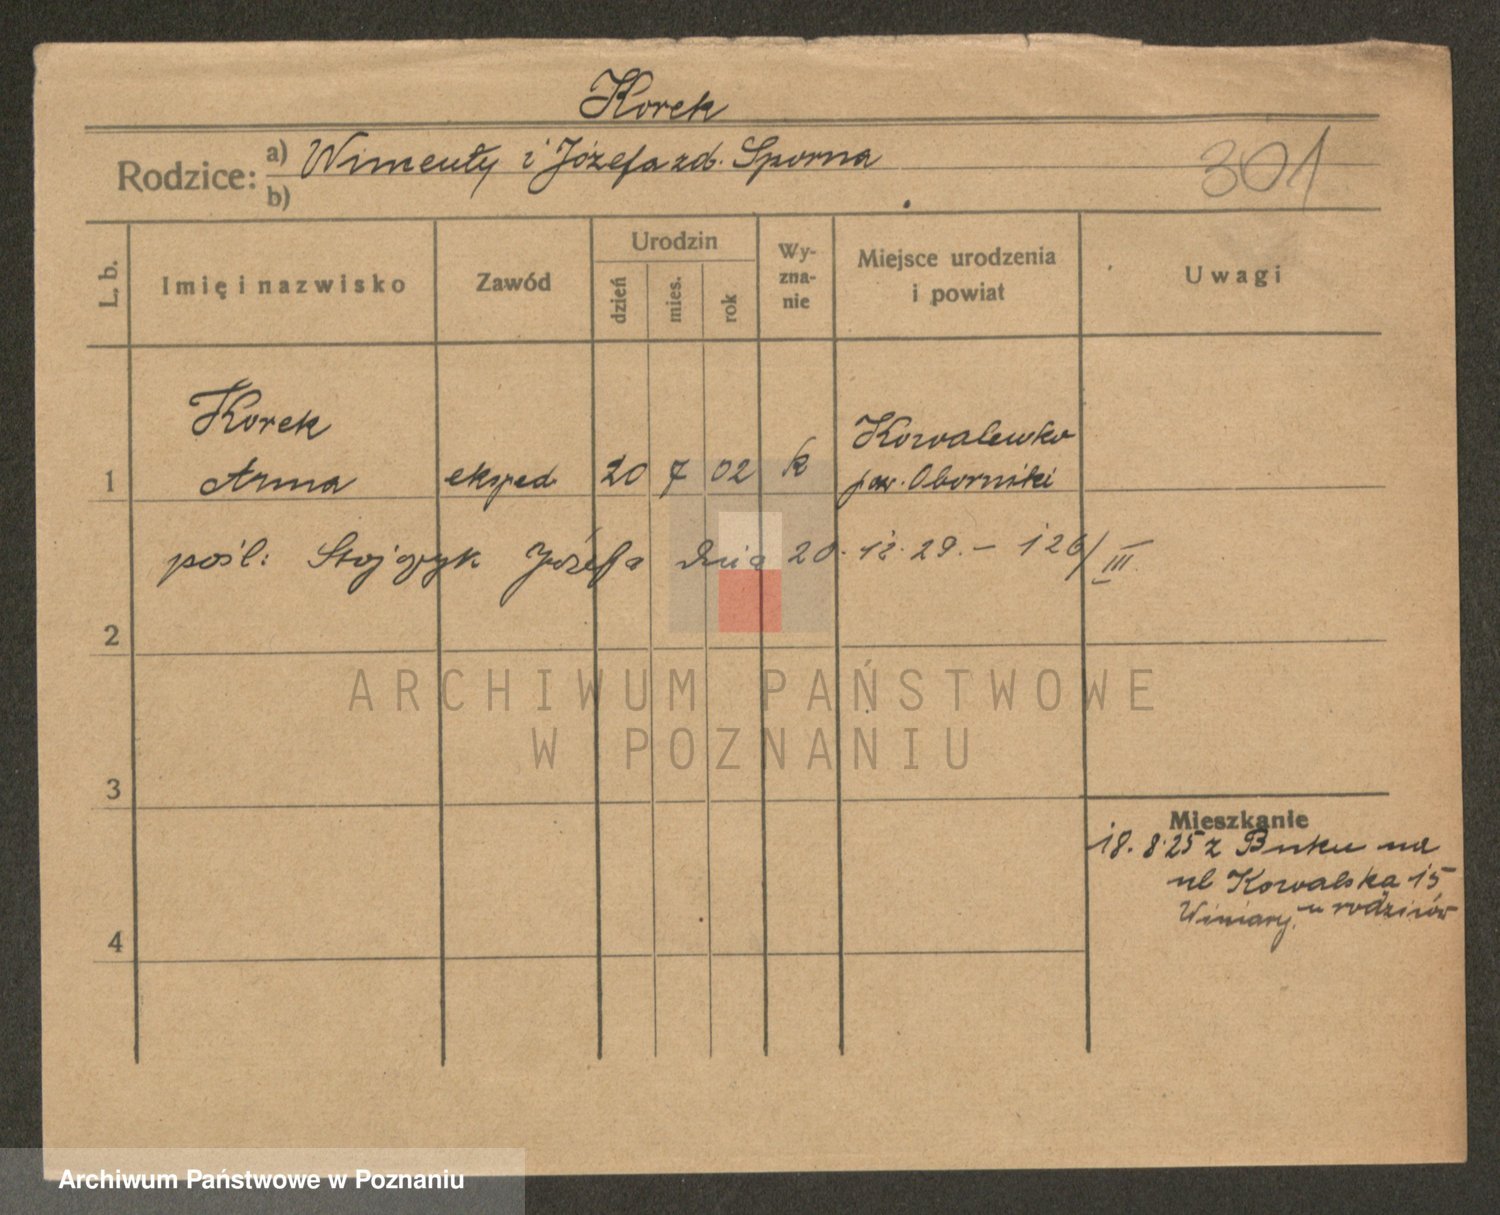 Korek
301
Rodzice: a) Wincenty i Józefa zd. Sporna
b)
L. b.
Imię i nazwisko
Zawód
Urodzin
dzień
mies.
rok
Wy-
zna-
nie
Miejsce urodzenia
i powiat
Uwagi
Korek
1 Anna eksped. 20 7 02 k Kowalewko
pow. Oborniki
pośl: Józefa dnia 20. 12. 29. – 126/III.
2
ARCHIWUM PAŃSTWOWE
W POZNANIU
3
Mieszkanie
18. 8. 25 z Buku na
ul Kowalska 15
Winiary. u rodziców
4
Archiwum Państwowe w Poznaniu